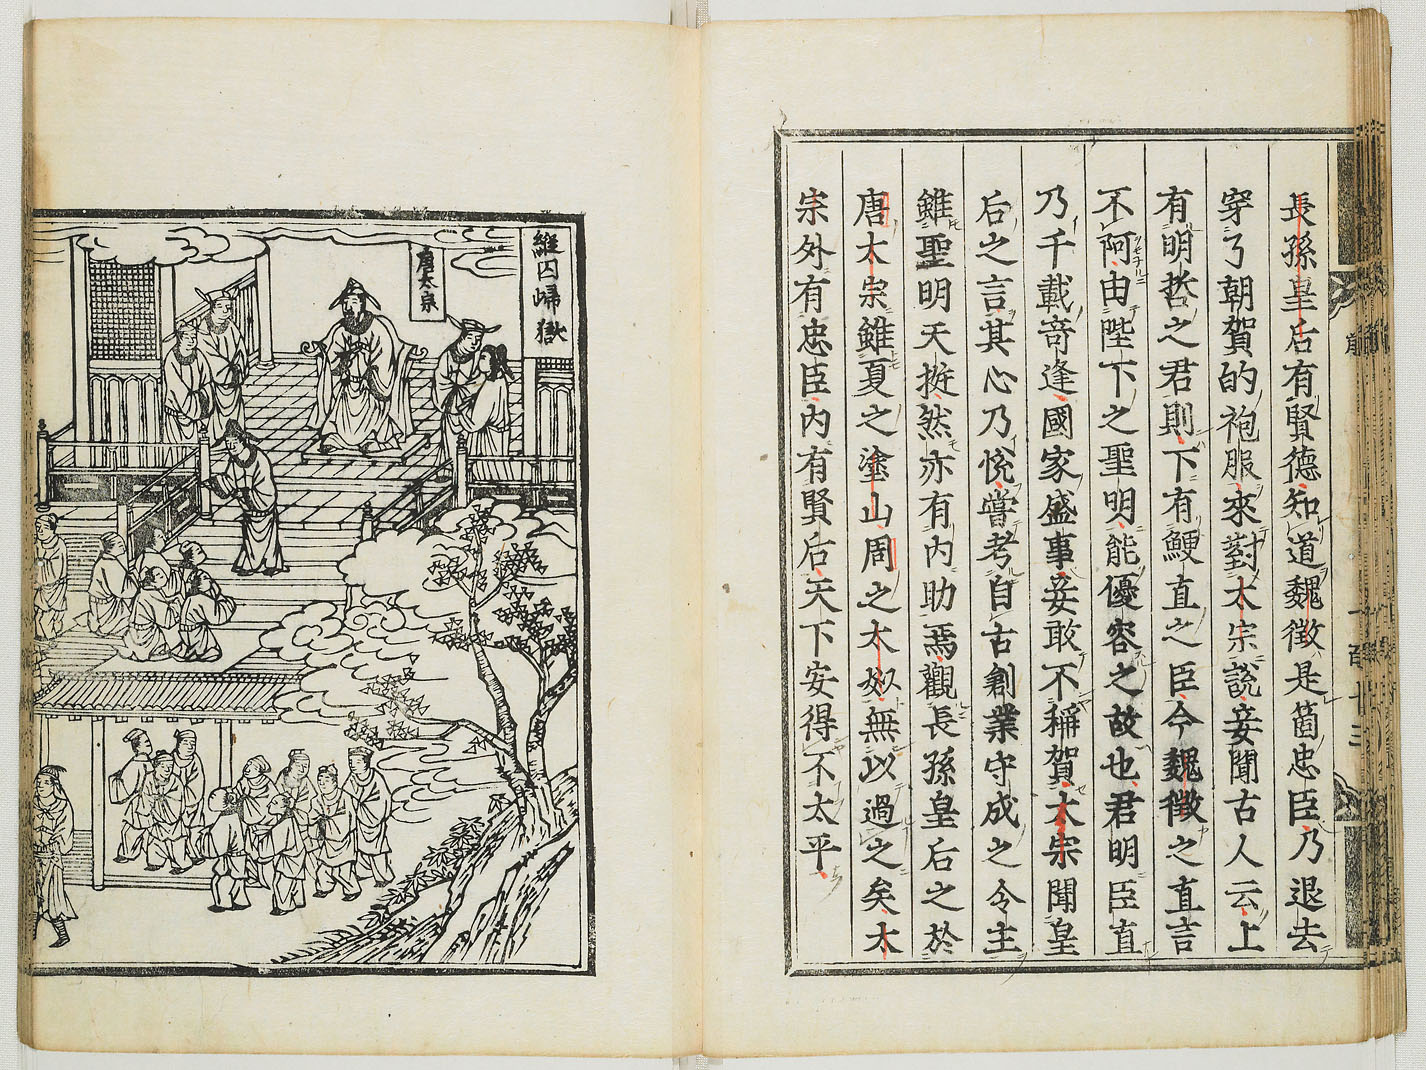 長孫皇后有賢德知道魏徵是箇忠臣乃退去
穿了朝賀的袍服來對太宗說妾聞古人云上
有明哲之君則下有鯁直之臣今魏徵之直言
不阿由陛下之聖明能優容之故也君明臣直
乃千載竒逢國家盛事妾敢不稱賀太宗聞皇
后之言其心乃悅嘗考自古創業守成之令主
雖聖明天挺然亦有内助焉觀長孫皇后之於
唐太宗雖夏之塗山周之太姒無以過之矣太
宗外有忠臣内有賢后天下安得不太平
縱囚歸獄
唐太宗